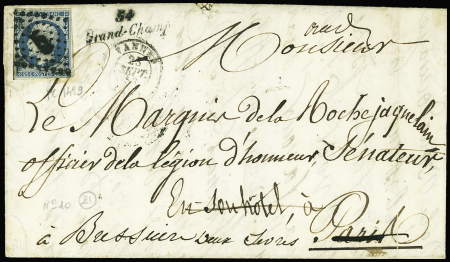 54
Grand-Champ
VANNES
SEPT.
Monsieur
Le Marquis de la Rochejaquelain
officier de la légion d'honneur, Sénateur,
En son hôtel, à
à Bressuire deux Sèvres Paris
N° 10 21